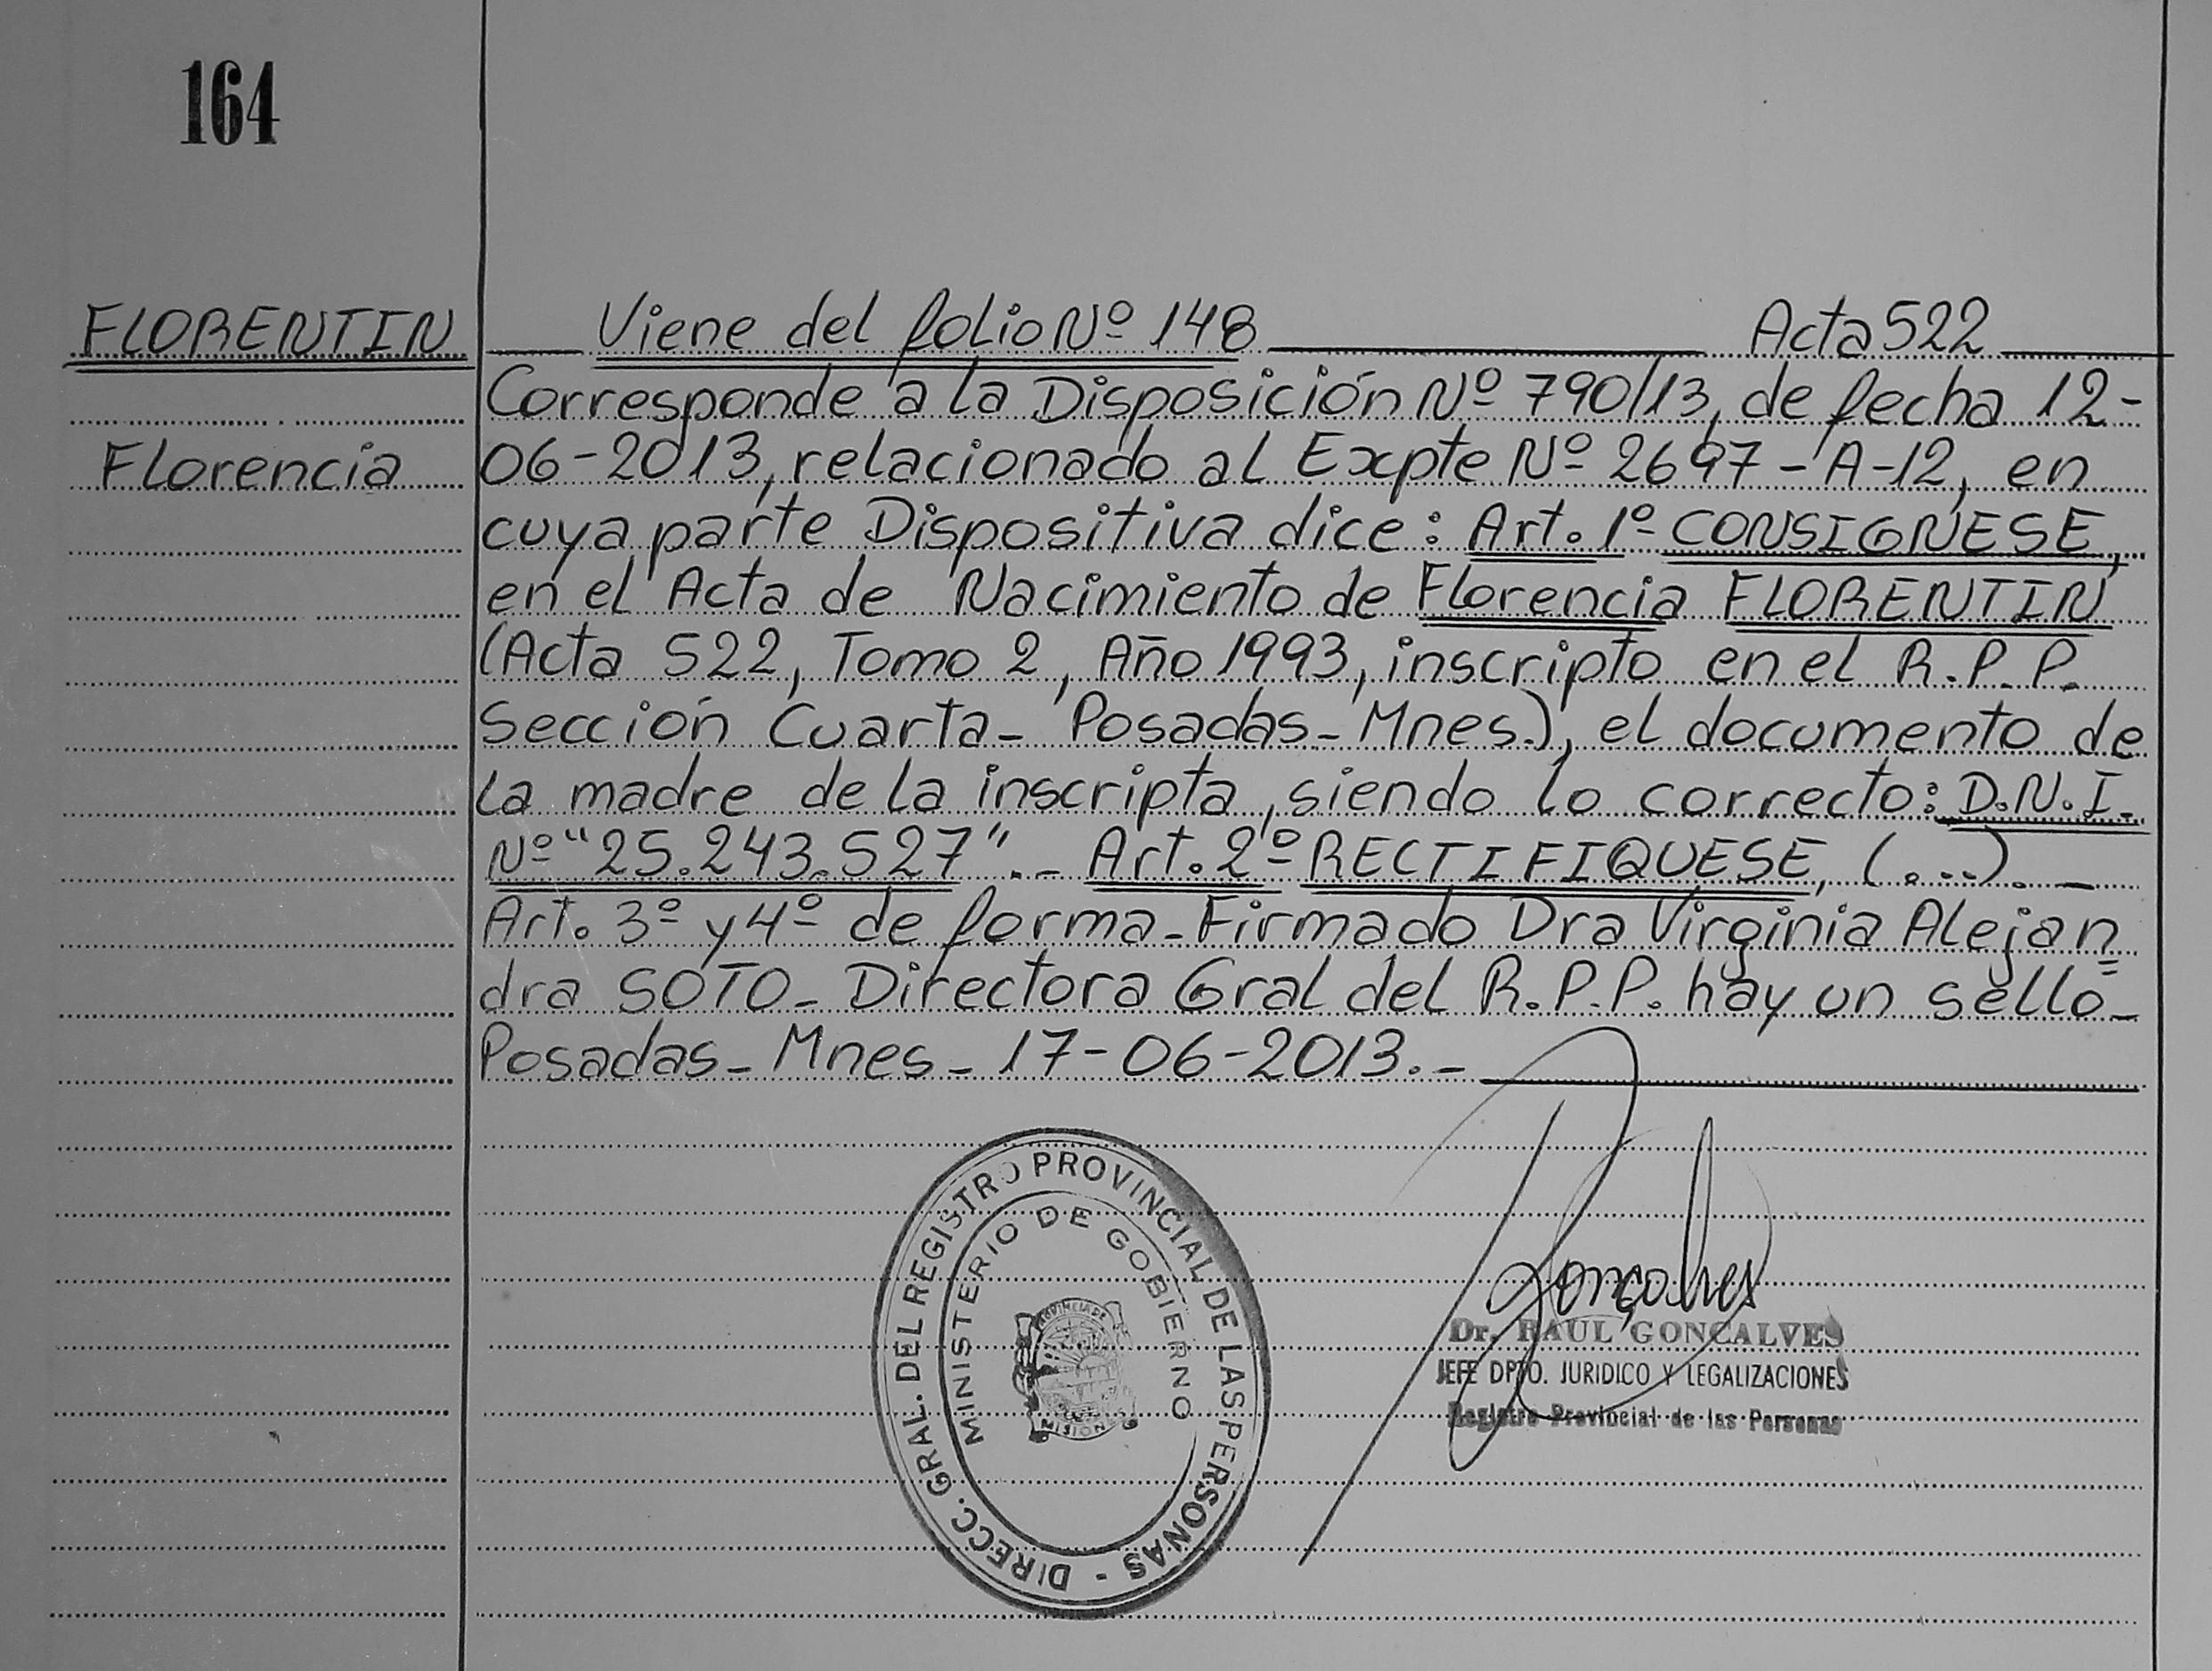 164
FLORENTIN
Florencia
Viene del folio Nº 148 Acta 522
Corresponde a la Disposición Nº 790/13, de fecha 12-
06-2013, relacionado al Expte Nº 2697-A-12, en
cuya parte Dispositiva dice: Art. 1º CONSIGNESE,
en el Acta de Nacimiento de Florencia FLORENTIN
(Acta 522, Tomo 2, Año 1993, inscripto en el R.P.P.
Sección Cuarta- Posadas- Mnes.), el documento de
la madre de la inscripta, siendo lo correcto: D.N.I.
Nº "25.243.527".- Art. 2º RECTIFIQUESE, (...).-
Art. 3º y 4º de forma-Firmado Dra Virginia Alejan=
dra SOTO- Directora Gral del R.P.P. hay un sello-
Posadas- Mnes- 17-06-2013.-
DIRECC. GRAL. DEL REGISTRO PROVINCIAL DE LAS PERSONAS -
MINISTERIO DE GOBIERNO
PROVINCIA DE
MISIONES
Gonçalves
Dr. RAUL GONCALVES
JEFE DPTO. JURIDICO Y LEGALIZACIONES
Registro Provincial de las Personas